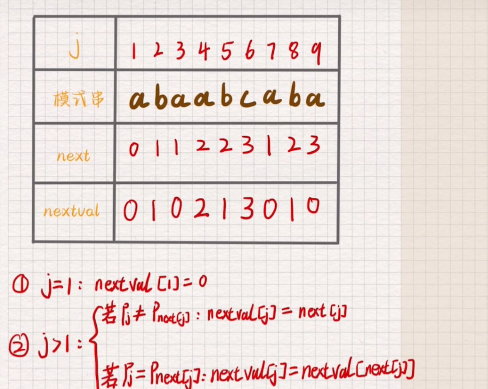 j 1 2 3 4 5 6 7 8 9
模式串 a b a a b c a b a
next 0 1 1 2 2 3 1 2 3
nextval 0 1 0 2 1 3 0 1 0
① j=1: nextval [1] = 0
② j>1: { 若 Pj ≠ Pnext[j] : nextval[j] = next[j]
若 Pj = Pnext[j] : nextval[j] = nextval[next[j]]